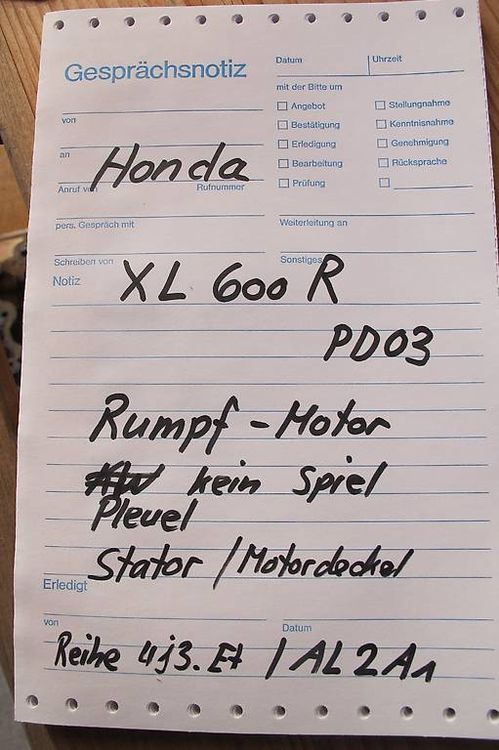 Gesprächsnotiz
Datum
Uhrzeit
mit der Bitte um
Angebot
Stellungnahme
von
Bestätigung
Kenntnisnahme
Erledigung
Genehmigung
an
Honda
Bearbeitung
Rücksprache
Anruf
Rufnummer
Prüfung
pers. Gespräch mit
Weiterleitung an
Schreiben von
Sonstiges
Notiz
XL 600 R
PD03
Rumpf - Motor
kein Spiel
Pleuel
Stator / Motordeckel
Erledigt
von
Datum
Reihe 4j3. Et / AL2A1